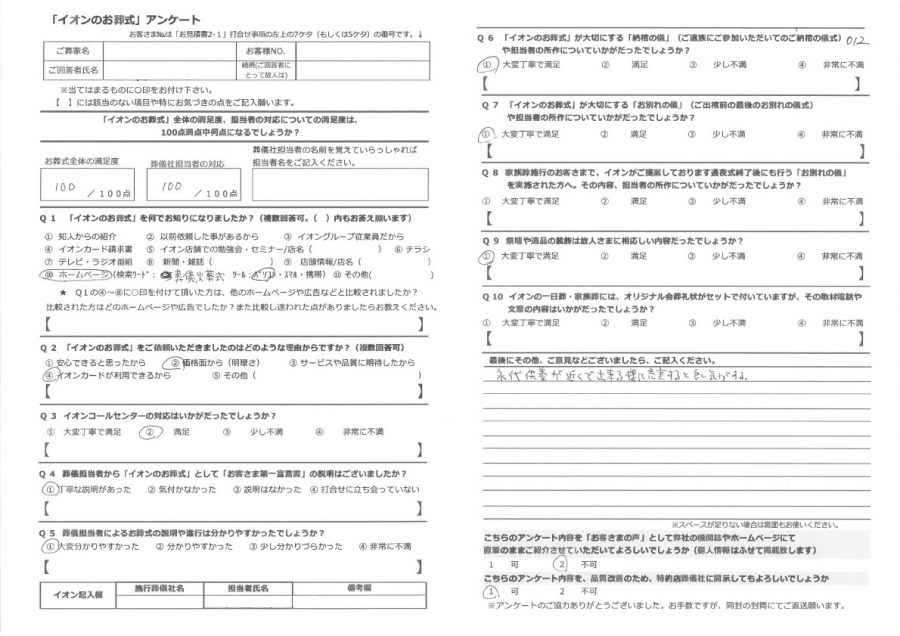 「イオンのお葬式」アンケート
お客さまNo.は「お見積書2-1」打合せ事項の左上の7ケタ（もしくは5ケタ）の番号です。↓
ご葬家名
お客様NO.
ご回答者氏名
続柄(ご回答者にとって故人は)
※当てはまるものに〇印をお付け下さい。
【　】には該当のない項目や特にお気づきの点をご記入願います。
「イオンのお葬式」全体の満足度、担当者の対応についての満足度は、
100点満点中何点になるでしょうか？
葬儀社担当者の名前を覚えていらっしゃれば
担当者名をご記入ください。
お葬式全体の満足度
葬儀社担当者の対応
100 ／100点
100 ／100点
Q1 「イオンのお葬式」を何でお知りになりましたか？（複数回答可。（　）内もお答え願います）
① 知人からの紹介　② 以前依頼した事があるから　③ イオングループ従業員だから
④ イオンカード請求書　⑤ イオン店舗での勉強会・セミナー/店名（　）　⑥ チラシ
⑦ テレビ・ラジオ番組　⑧ 新聞・雑誌（　）　⑨ 店頭情報/店名（　）
⑩ ホームページ(検索ワード：葬儀火葬式　ツール：パソコン・スマホ・携帯）　⑪ その他(　）
★ Q1の④～⑧に〇印を付けて頂いた方は、他のホームページや広告などと比較されましたか？
比較された方はどのホームページや広告でしたか？また比較し迷われた点がありましたらお教えください。
【　】
Q2 「イオンのお葬式」をご依頼いただきましたのはどのような理由からですか？（複数回答可）
① 安心できると思ったから　② 価格面から（明瞭さ）　③ サービスや品質に期待したから
④ イオンカードが利用できるから　⑤ その他（　）
【　】
Q3 イオンコールセンターの対応はいかがだったでしょうか？
① 大変丁寧で満足　② 満足　③ 少し不満　④ 非常に不満
【　】
Q4 葬儀担当者から「イオンのお葬式」として「お客さま第一宣言書」の説明はございましたか？
① 丁寧な説明があった　② 気付かなかった　③ 説明はなかった　④ 打合せに立ち会っていない
【　】
Q5 葬儀担当者によるお葬式の説明や進行は分かりやすかったでしょうか？
① 大変分かりやすかった　② 分かりやすかった　③ 少し分かりづらかった　④ 非常に不満
【　】
イオン記入欄　施行葬儀社名　担当者氏名　備考欄
Q6 「イオンのお葬式」が大切にする「納棺の儀」（ご遺族にご参加いただいてのご納棺の儀式）
012
や担当者の所作についていかがだったでしょうか？
① 大変丁寧で満足　② 満足　③ 少し不満　④ 非常に不満
【　】
Q7 「イオンのお葬式」が大切にする「お別れの儀」（ご出棺前の最後のお別れの儀式）
や担当者の所作についていかがだったでしょうか？
① 大変丁寧で満足　② 満足　③ 少し不満　④ 非常に不満
【　】
Q8 家族葬施行のお客さまで、イオンがご提案しております通夜式終了後にも行う「お別れの儀」
を実施された方へ。その内容、担当者の所作についていかがだったでしょうか？
① 大変丁寧で満足　② 満足　③ 少し不満　④ 非常に不満
【　】
Q9 祭壇や遺品の装飾は故人さまに相応しい内容だったでしょうか？
① 大変丁寧で満足　② 満足　③ 少し不満　④ 非常に不満
【　】
Q10 イオンの一日葬・家族葬には、オリジナル会葬礼状がセットで付いていますが、その取材電話や
文章の内容はいかがだったでしょうか？
① 大変丁寧で満足　② 満足　③ 少し不満　④ 非常に不満
【　】
最後にその他、ご意見などございましたら、ご記入ください。
永代供養が近くで出来る様に充実すると良い気がする。
※スペースが足りない場合は裏面もお使いください。
こちらのアンケート内容を「お客さまの声」として弊社の機関誌やホームページにて
直筆のままご紹介させていただいてよろしいでしょうか（個人情報はふせて掲載致します）
1 可　2 不可
こちらのアンケート内容を、品質改善のため、特約店葬儀社に開示してもよろしいでしょうか
1 可　2 不可
※アンケートのご協力ありがとうございました。お手数ですが、同封の封筒にてご返送願います。